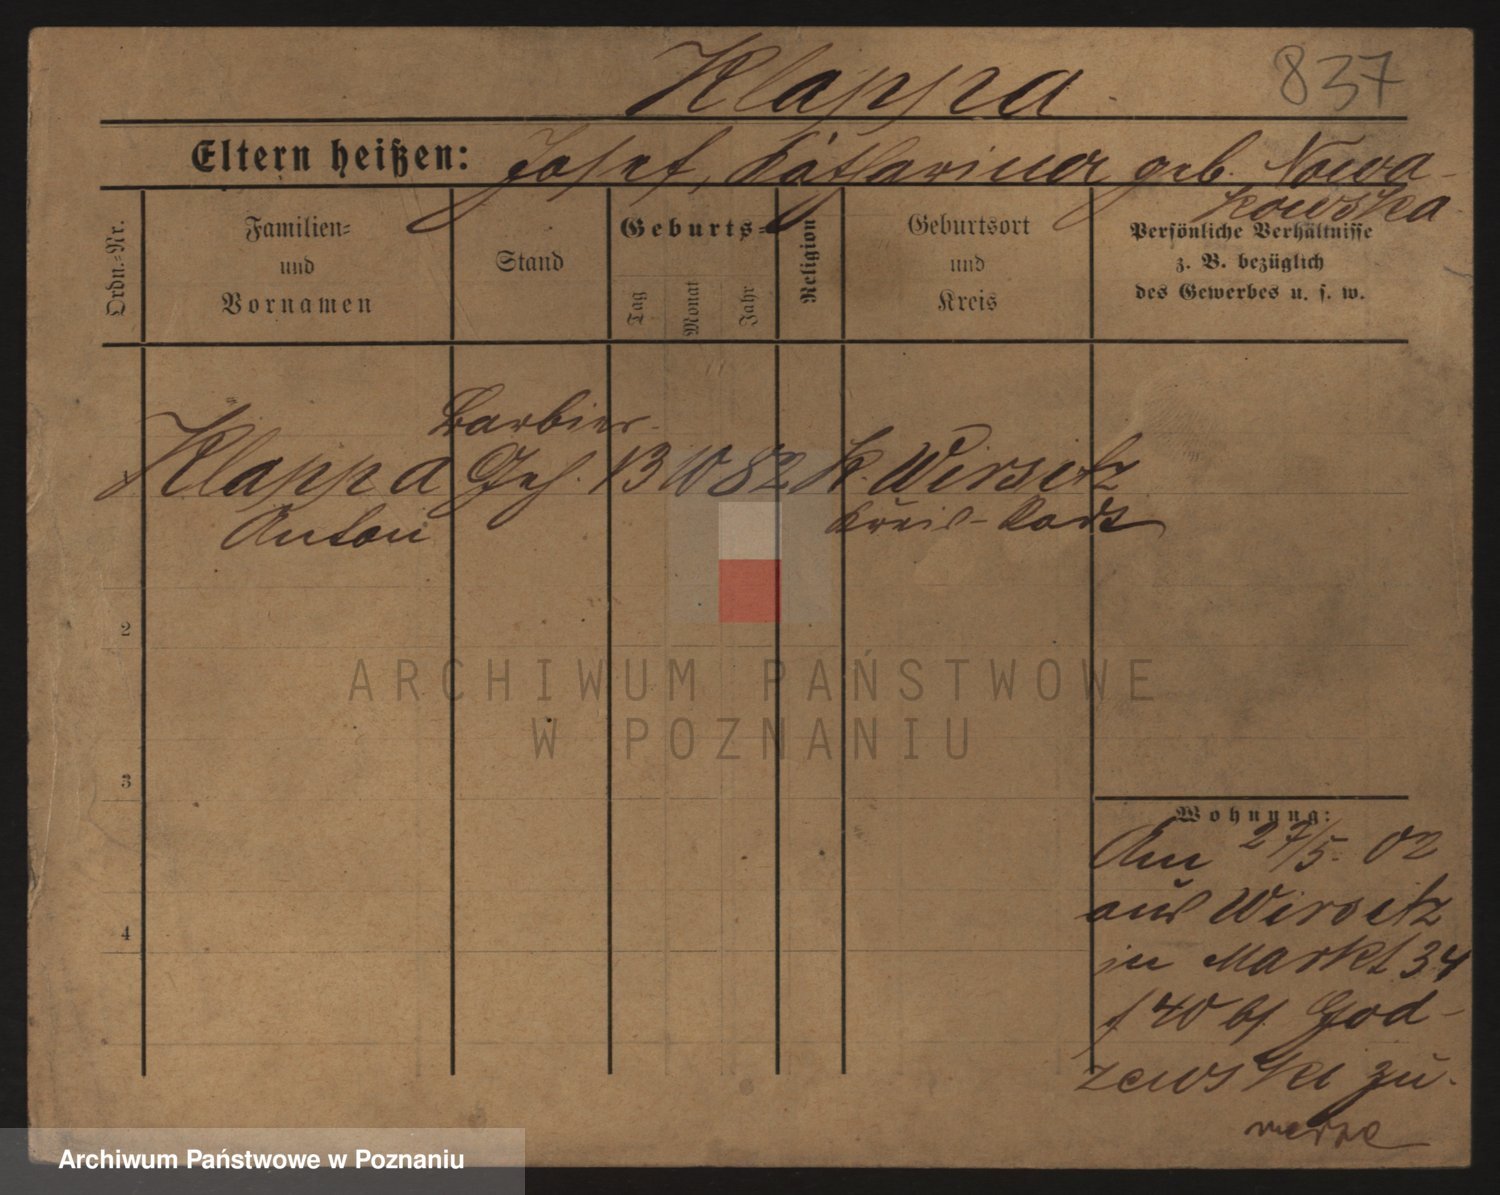 Klappa
837
Eltern heißen: Josef, Katharina geb. Nowa-
kowska
Ordn.-Nr.
Familien-
und
Vornamen
Stand
Geburts-
Tag
Monat
Jahr
Religion
Geburtsort
und
Kreis
Persönliche Verhältnisse
z. B. bezüglich
des Gewerbes u. s. w.
Barbier
1 Klappa Geh. 13 10 82 k. Wirsitz
Anton Kreis-
2
3
4
Wohnung:
Am 27/5. 02
aus Wirsitz
in Markt 34
bf God-
zewski zu.
ARCHIWUM PAŃSTWOWE
W POZNANIU
Archiwum Państwowe w Poznaniu